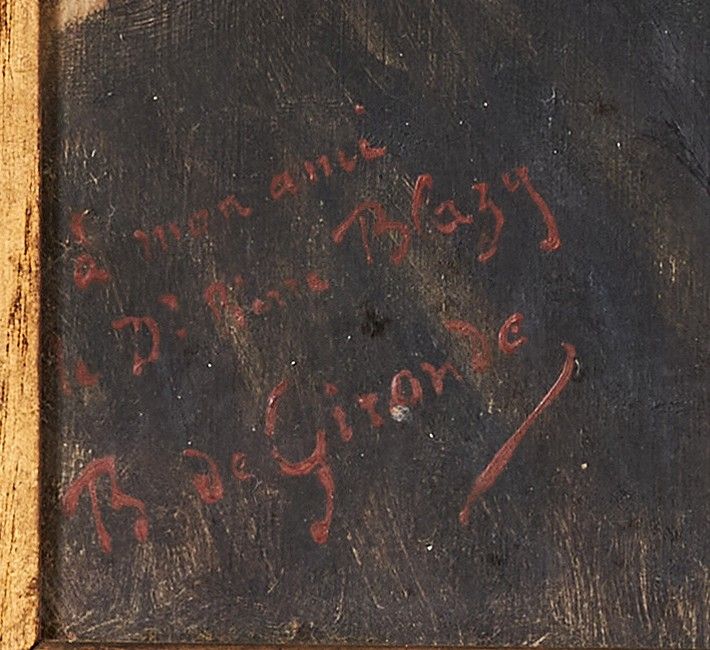 à mon ami
le Dr. Pierre Blazy
B de Gironde